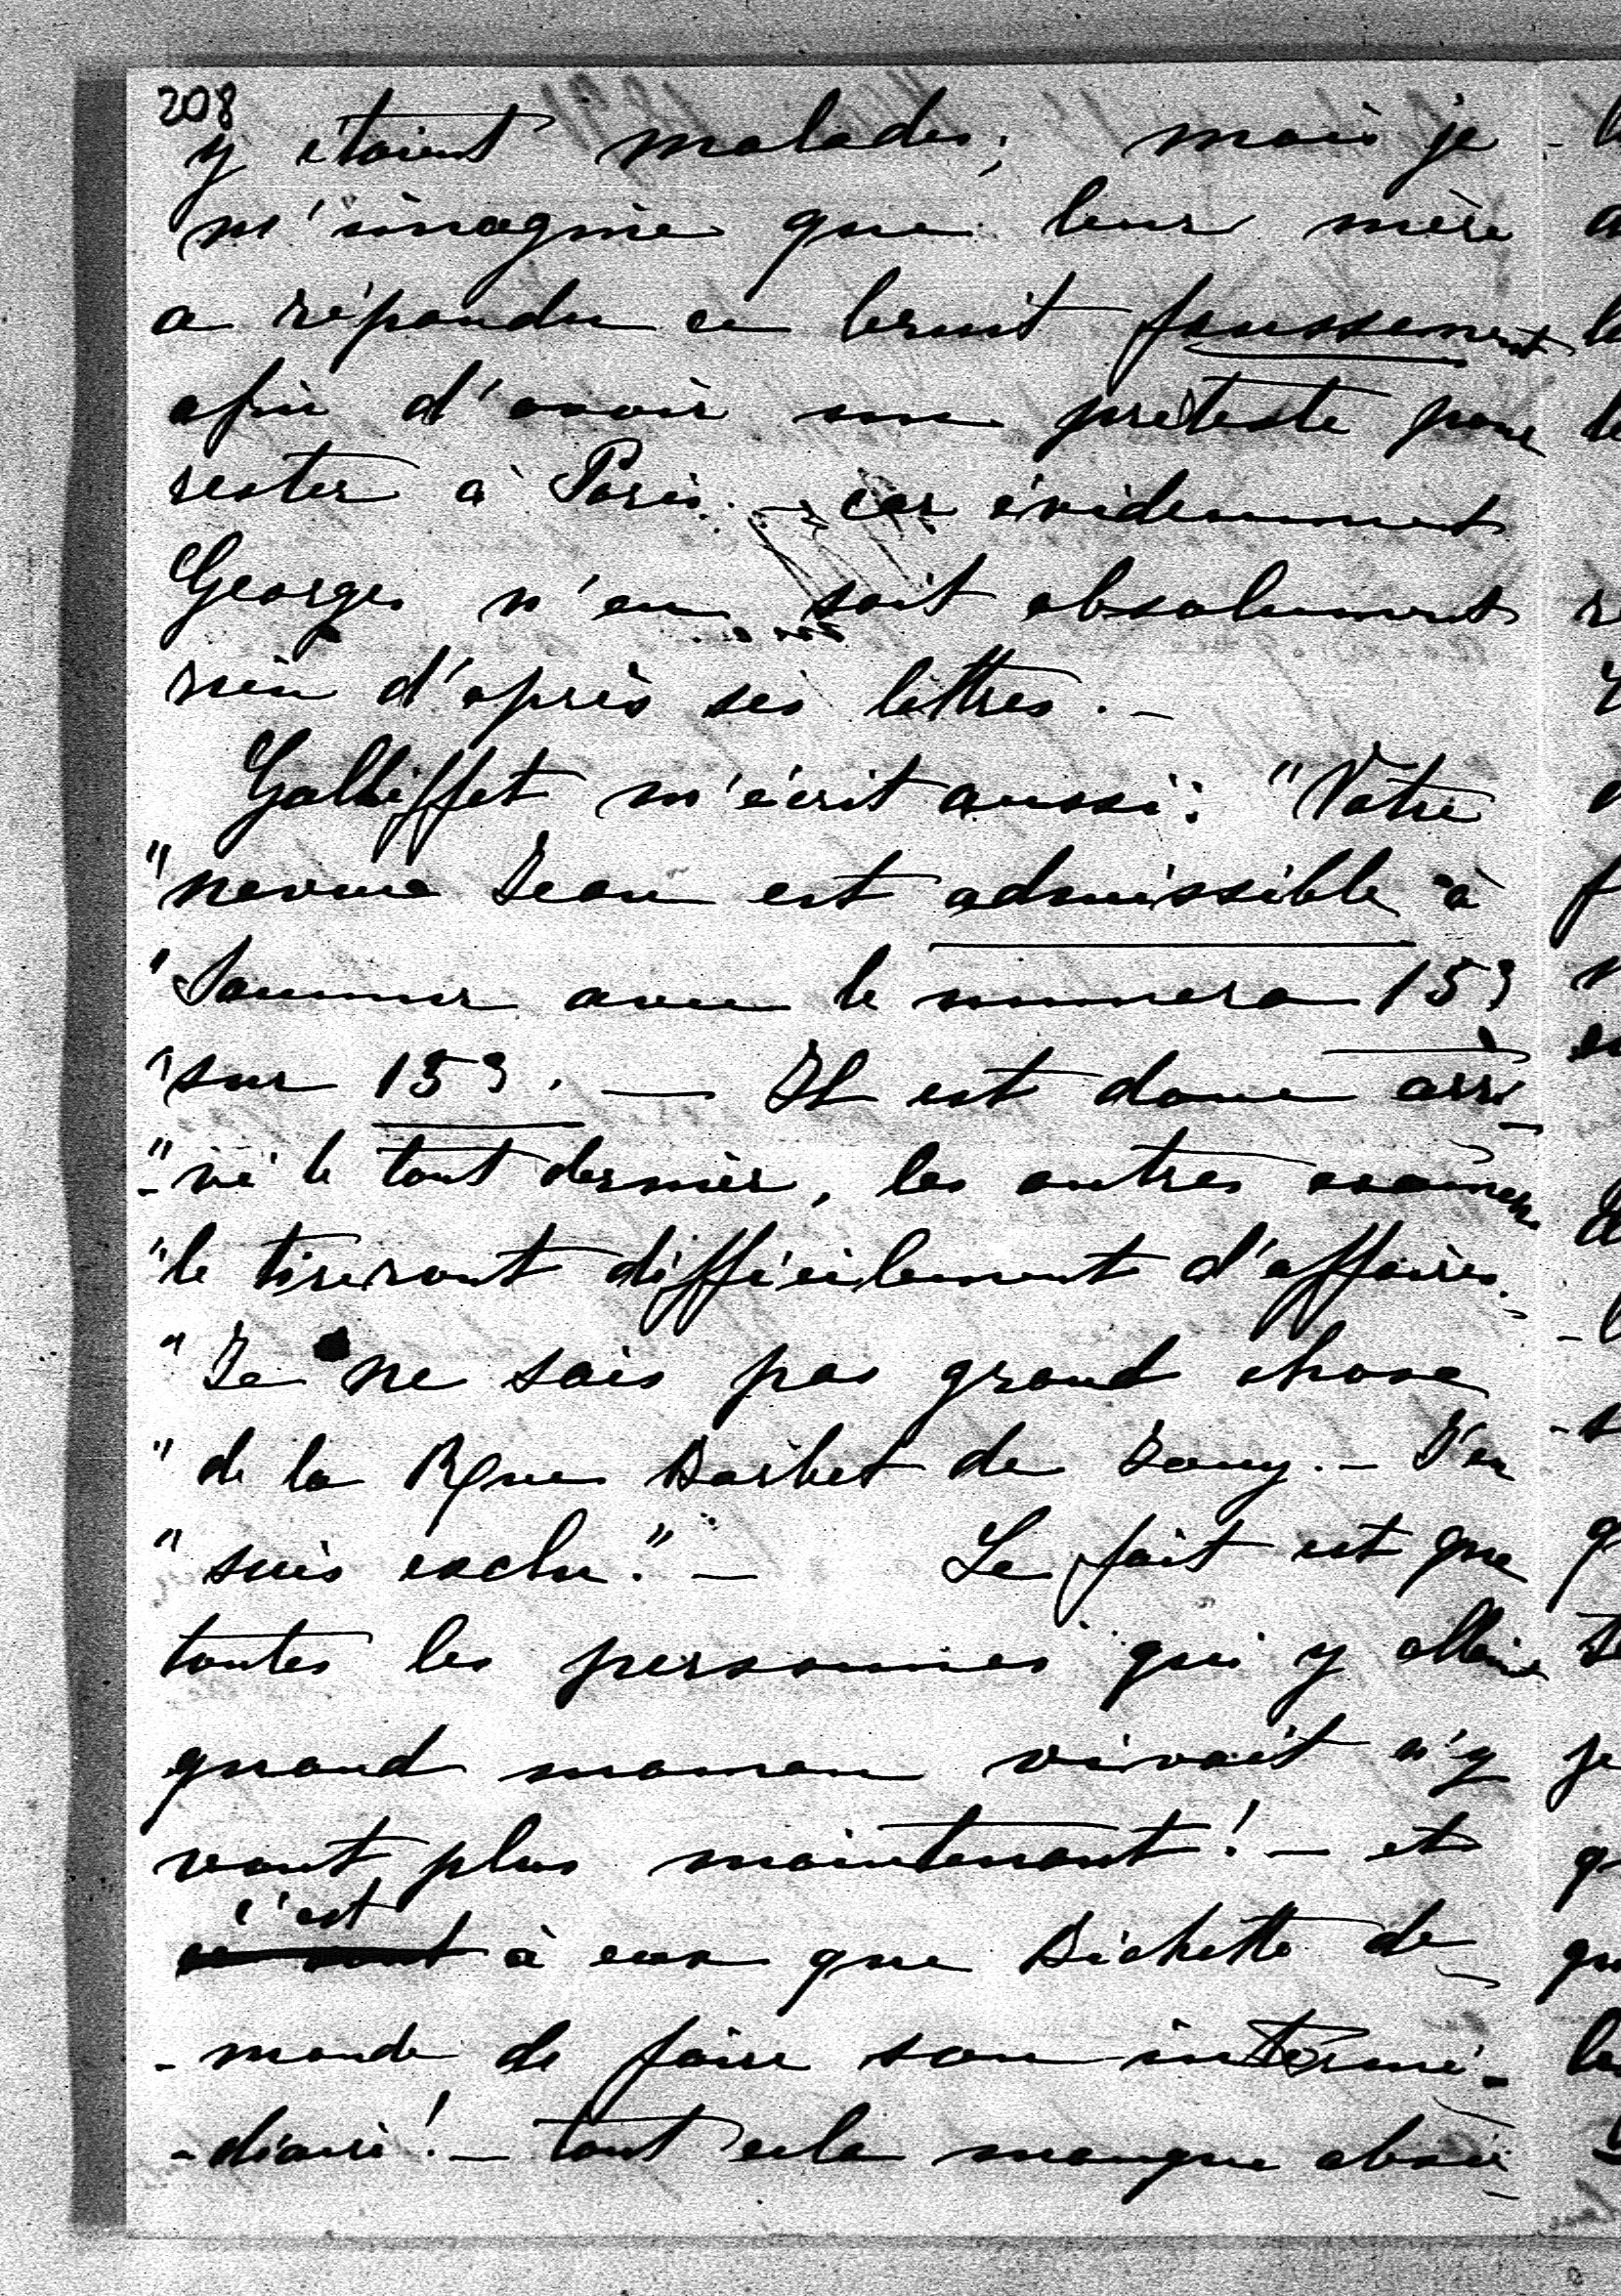 208
y étaient malades; mais je
m'imagine que leur mère
a répandu ce bruit faussement
afin d'avoir un prétexte pour
rester à Paris. - car évidemment
Georges n'en sait absolument
rien d'après ses lettres. -
Galliffet m'écrit aussi: "Votre
"neveu Jean est admissible à
"Saumur avec le numero 153
"sur 153. — Il est donc arri-
"-vé le tout dernier, les autres examens
"le tireront difficilement d'affaires.
"Je ne sais pas grand chose
"de la Rue Barbet de Jouy. - J'en
"suis exclu." — Le fait est que
toutes les personnes qui y allaient
quand maman vivait n'y
vont plus maintenant! - et
c'est
ce sont à eux que Bichette de-
-mande de faire son intermé-
-diaire! - tout cela manque abso-